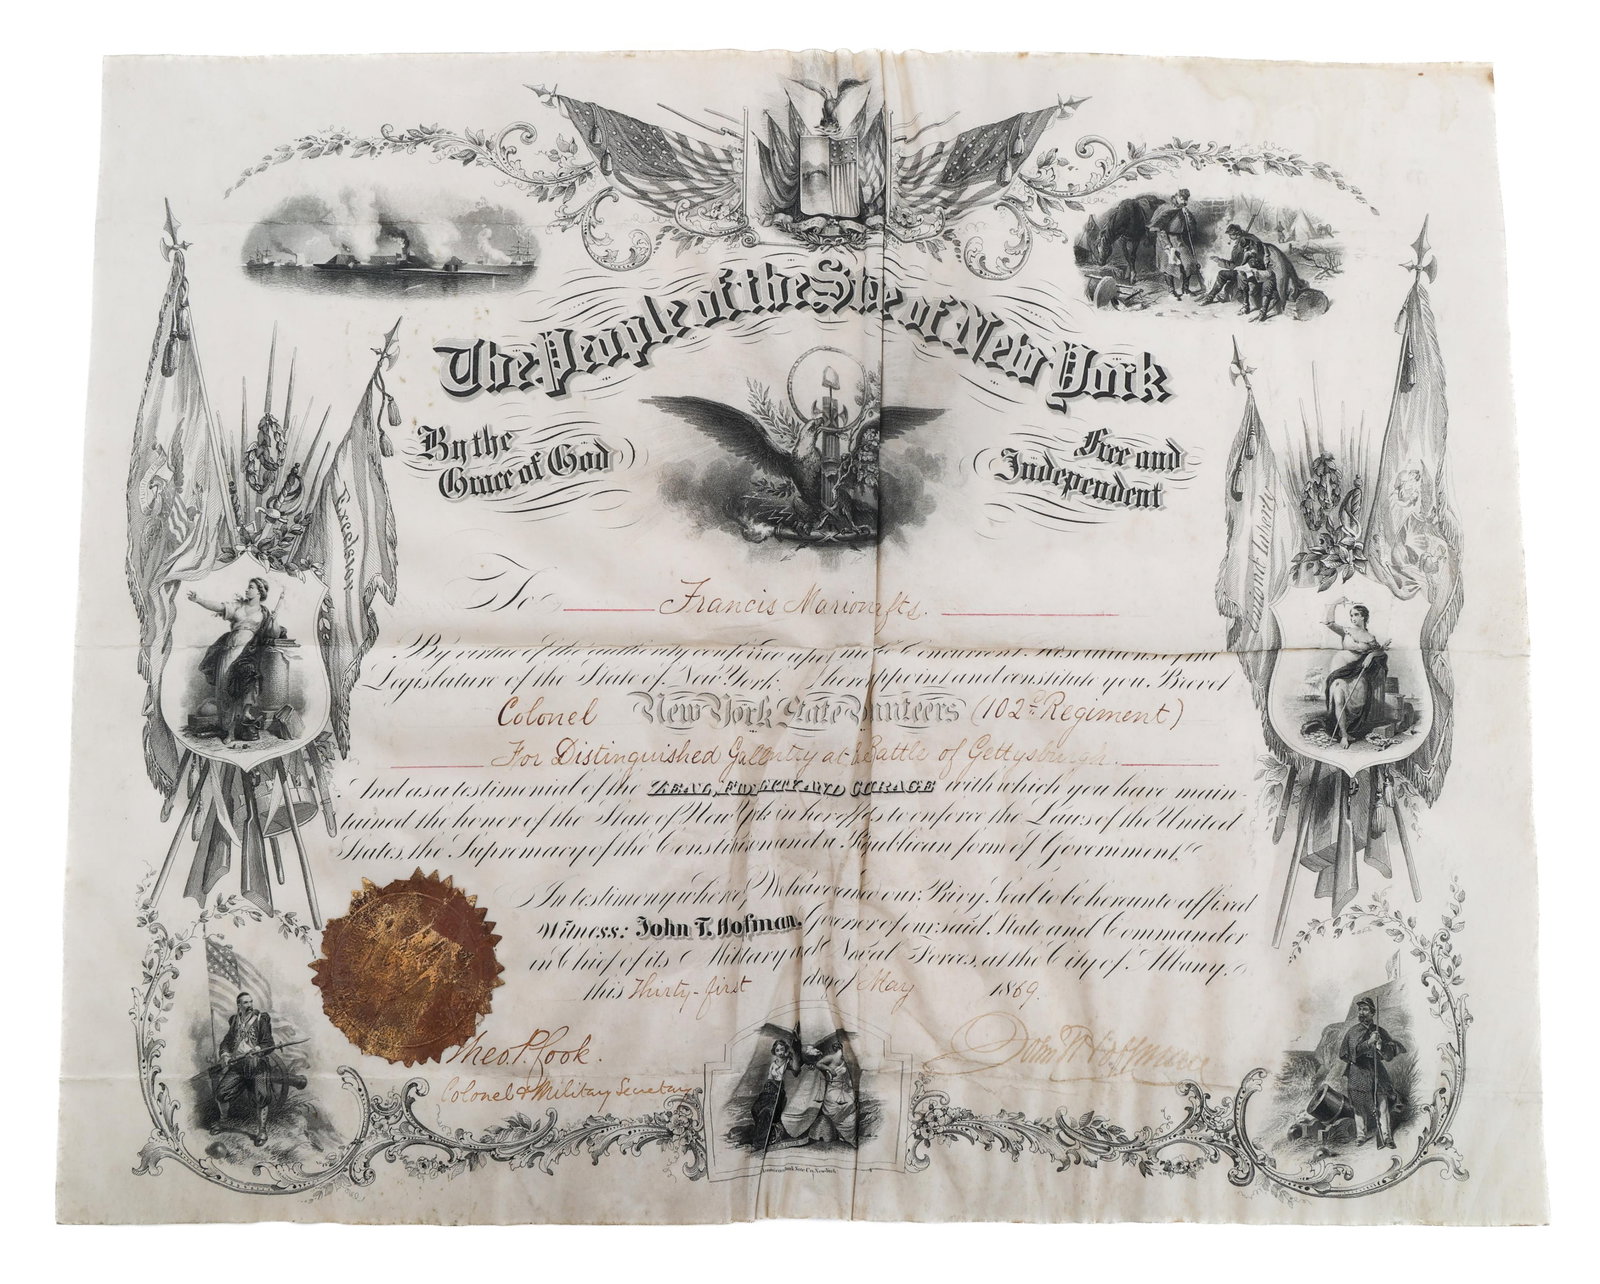 The People of the State of New York
By the
Grace of God
Free and
Independent
Excelsior
and Liberty
To Francis Marion
By virtue of the authority conferred upon me by Concurrent Resolutions of the
Legislature of the State of New York. I here appoint and constitute you, Brevet
Colonel New York State Volunteers (102d Regiment)
For Distinguished Gallantry at Battle of Gettysburgh.
And as a testimonial of the ZEAL, FIDELITY AND COURAGE with which you have main-
tained the honor of the State of New York in her efforts to enforce the Laws of the United
States, the Supremacy of the Constitution and a Republican form of Government.
In testimony whereof, We have caused our Privy Seal to be hereunto affixed
Witness: John T. Hoffman, Governor of our said State and Commander
in Chief of its Military and Naval Forces, at the City of Albany,
this Thirty-first day of May 1869.
Theo P. Cook.
Colonel & Military Secretary
John T. Hoffman